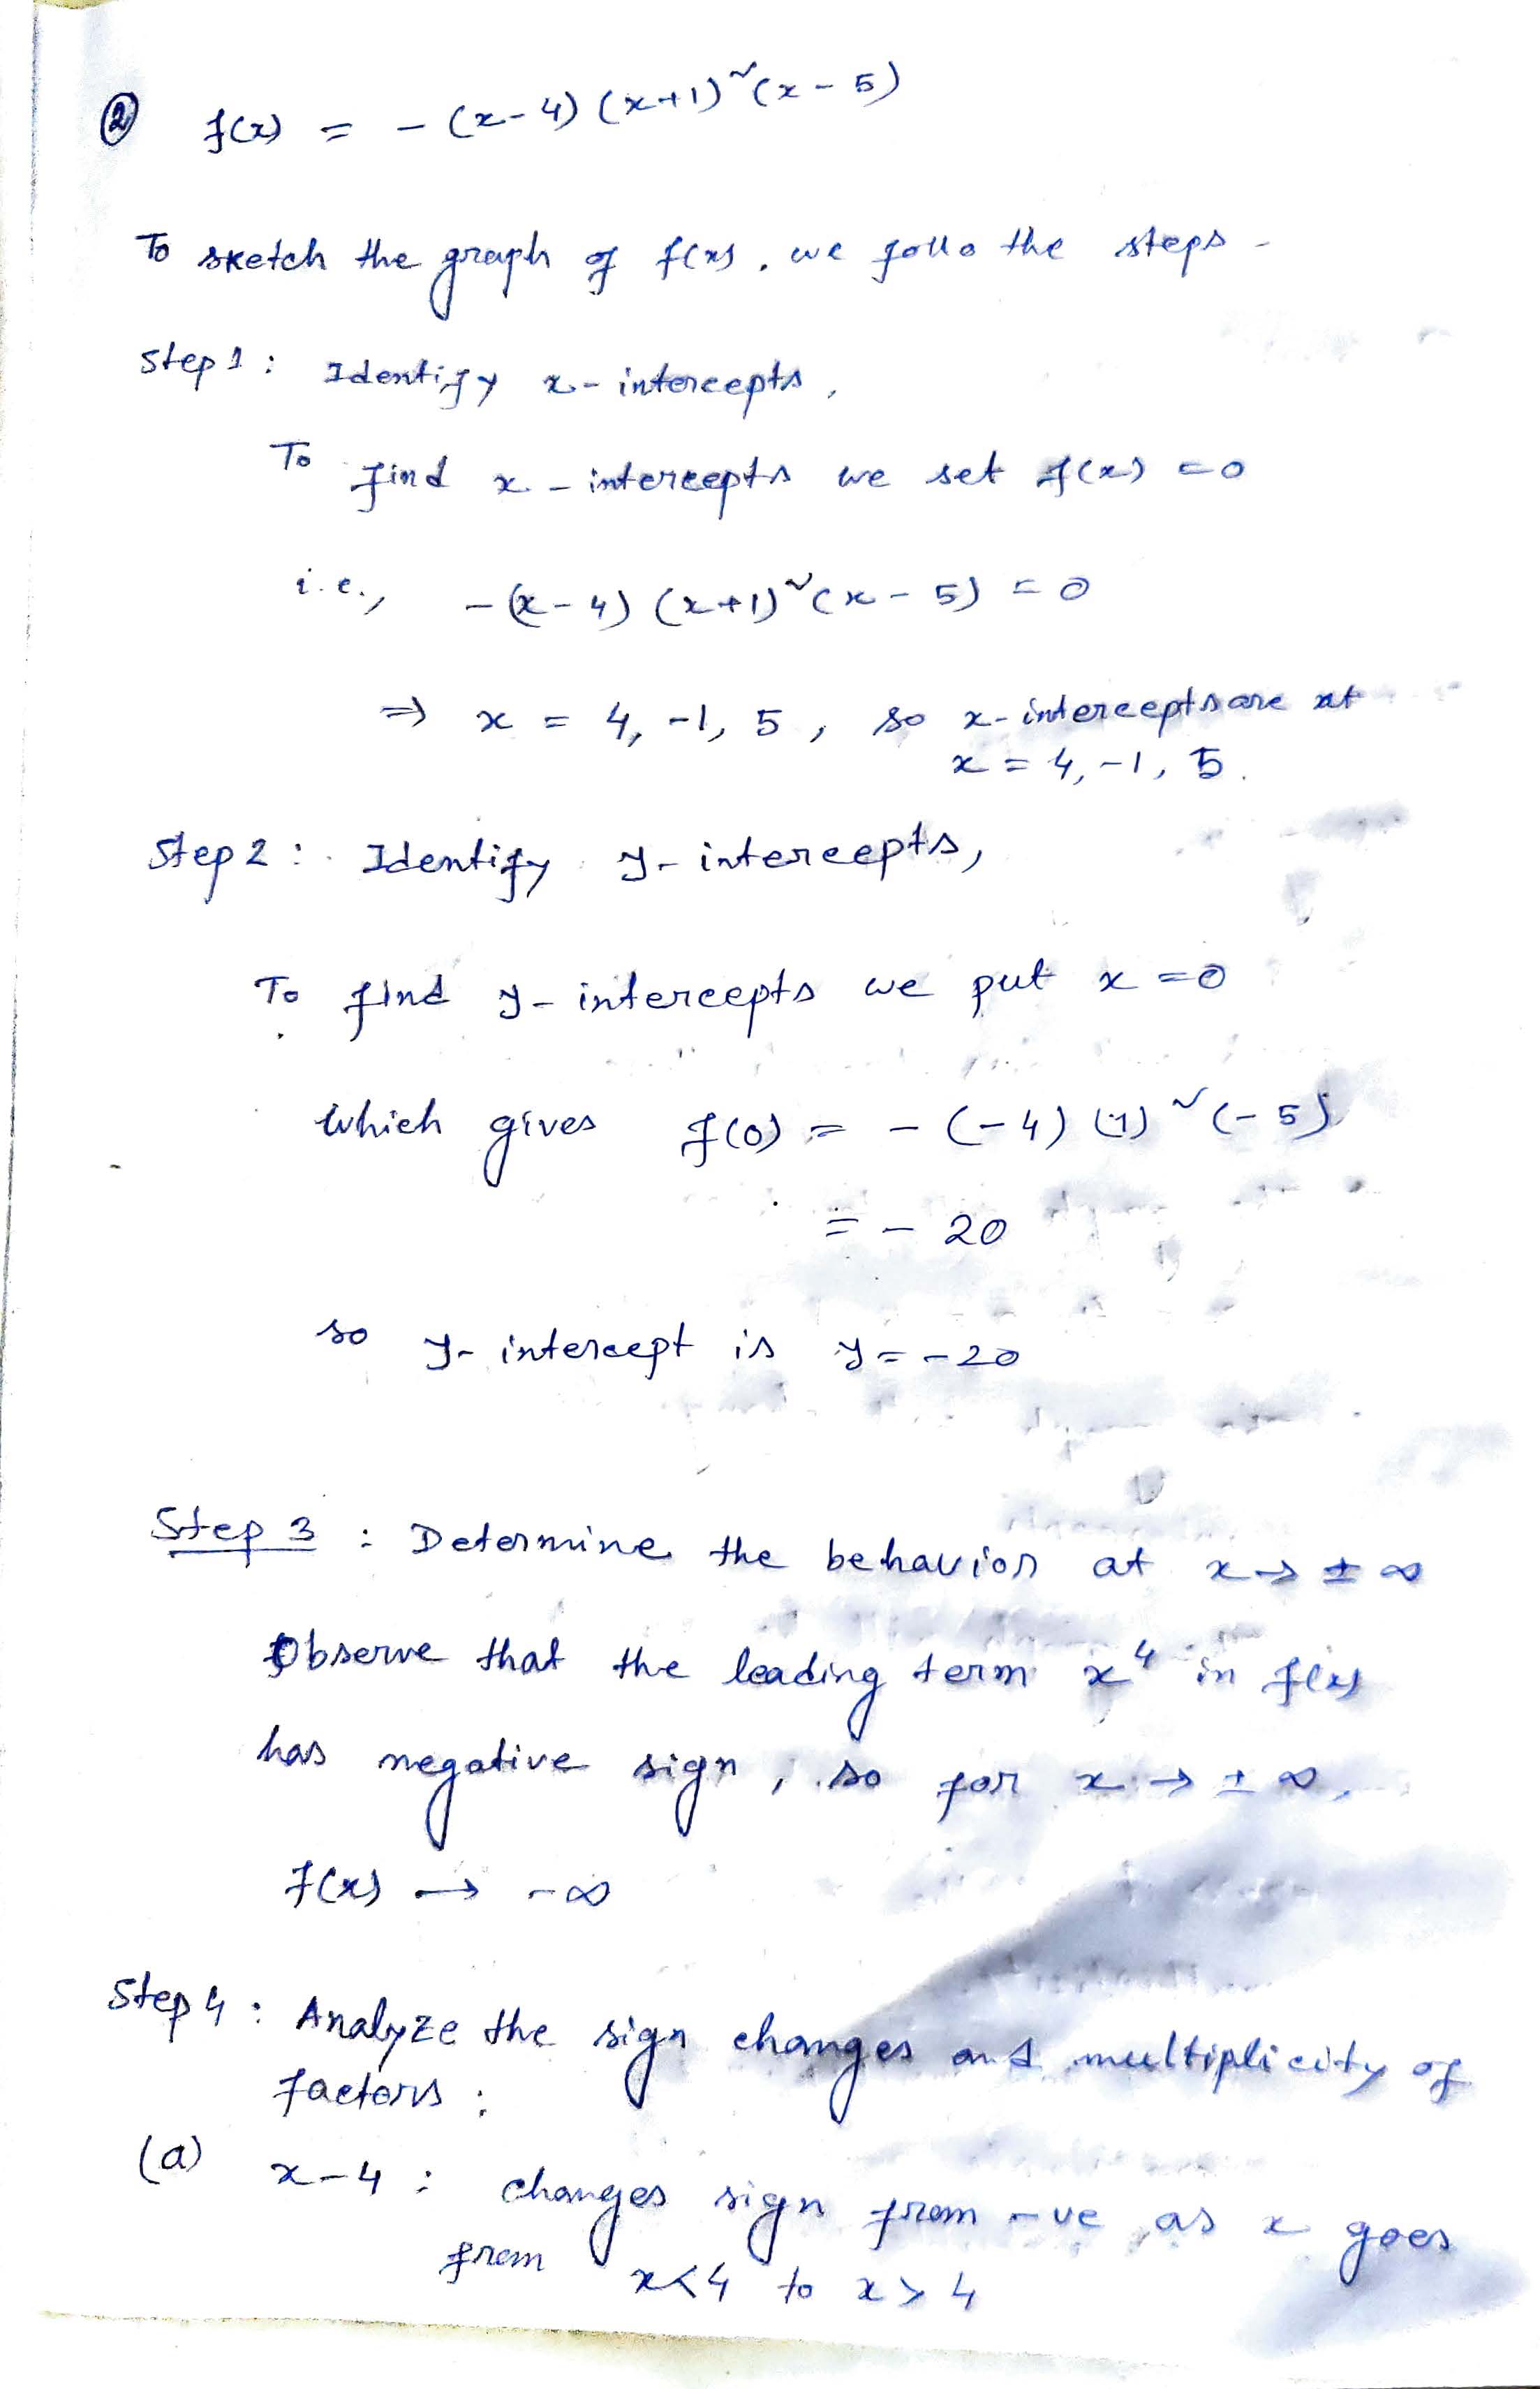 ② f(x) = - (x-4) (x+1)~(x-5)
To sketch the graph of f(x), we follo the steps -
Step 1 : Identify x-intercepts,
To find x-intercepts we set f(x) = 0
i.e., -(x-4) (x+1)~(x-5) = 0
⇒ x = 4, -1, 5, so x-intercepts are at
x = 4, -1, 5.
Step 2 : Identify y-intercepts,
To find y-intercepts we put x = 0
which gives f(0) = - (-4) (1)~(-5)
= - 20
so y-intercept is y = -20
Step 3 : Determine the behavior at x → ± ∞
Observe that the leading term x⁴ in f(x)
has negative sign, so for x → ± ∞,
f(x) → -∞
Step 4 : Analyze the sign changes and multiplicity of
factors :
(a) x-4 : changes sign from -ve as x goes
from x<4 to x>4